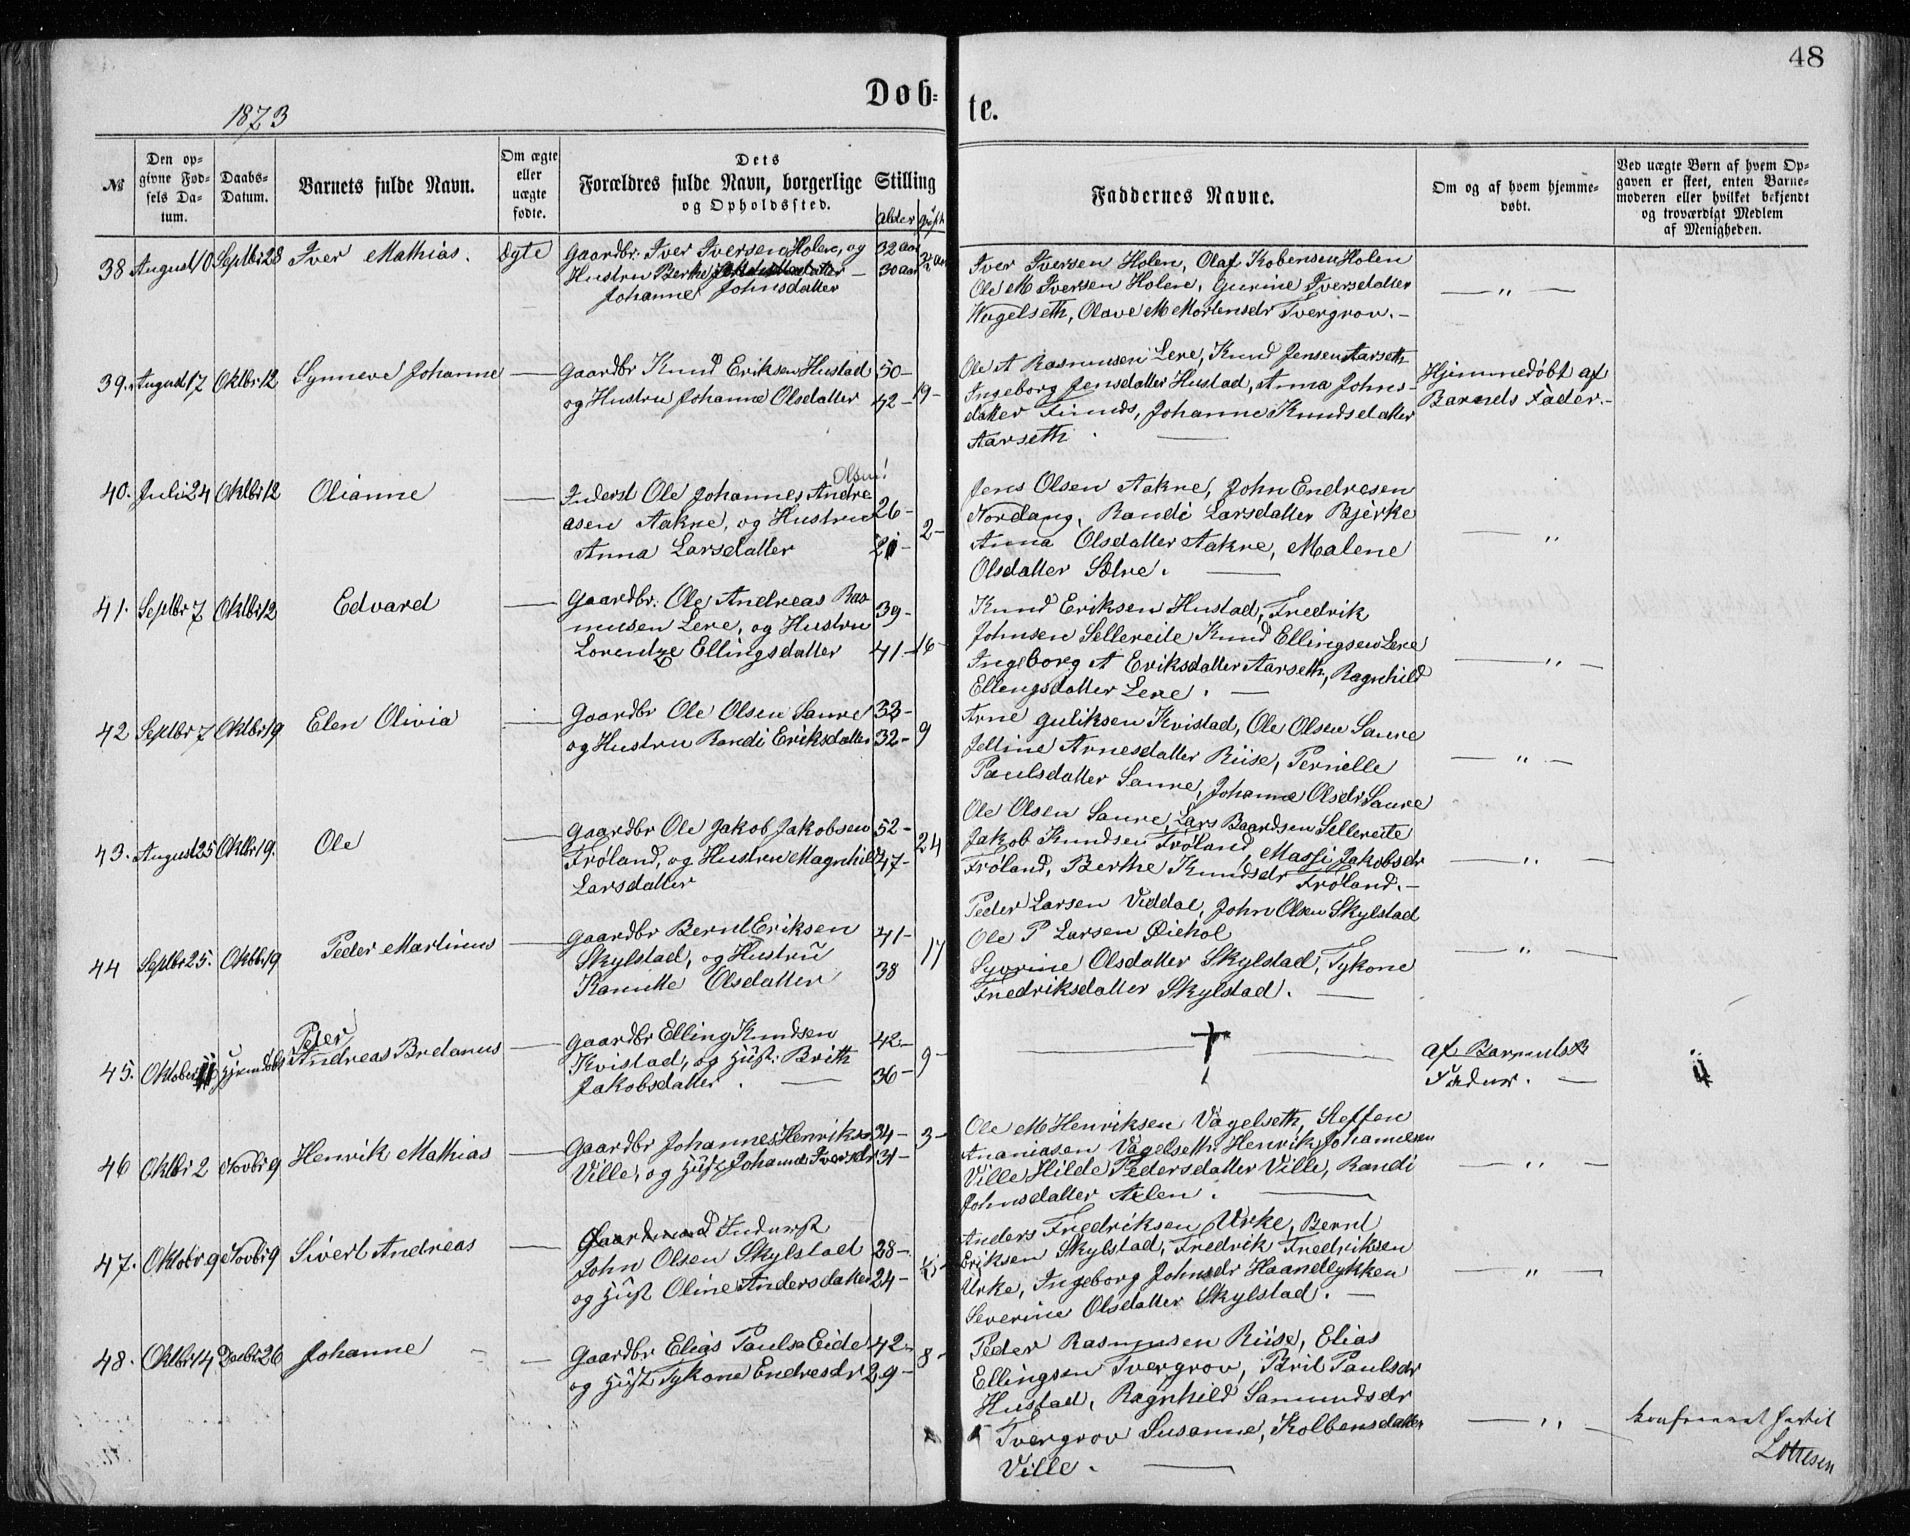 48
Døb=
te.
1873
No
Den op=
givne Fød=
sels Da=
tum.
Daabs=
Datum.
Barnets fulde Navn.
Om ægte
eller
uægte
fødte.
Dets
Forældres fulde Navn, borgerlige Stilling
og Opholdssted.
Alder
Gift
Faddernes Navne.
Om og af hvem hjemme=
døbt.
Ved uægte Børn af hvem Op=
gaven er skeet, enten Barne=
moderen eller hvilket bekjendt
og troværdigt Medlem
af Menigheden.
38 August 10 Septbr 28 Iver Mathias. Ægte Gaardbr: Iver Iversen Holen, og 32 aar
Hustru Berthe — 30 aar
Johanne Johnsdatter
Iver Iversen Holen, Olaf Kobensen Holen
Ole M Iversen Holen, Gurine Iversdatter
Wugelseth, Olave M Mortensdr Tvergrov. —
— " —
39. August 17 Oktbr 12 Synneve Johanne — Gaardbr Knud Eriksen Hustad 50 —
og Hustru Johanne Olsdatter 42 — 19 —
Ole A Rasmusen Lere, Knud Jensen Aarseth
Ingeborg Jensdatter Hustad, Anna Johns-
datter Finnds, Johanne Knudsdatter
Aarseth. —
Hjemmedøbt af
Barnets Fader. —
40. Juli 24 Oktbr 12 Olianne — Inderst Ole Johannes Andre Olsen!
asen Aakre, og Hustru 26 — 2 —
Anna Larsdatter 21 —
Jens Olsen Aakre, John Endresen
Nordang, Randi Larsdatter Bjerke
Anna Olsdatter Aakre, Malene
Olsdatter Sælre. —
— "
41. Septbr 7 Oktbr 12 Edvard — Gaardbr: Ole Andreas Ras
musen Lere, og Hustru 39 —
Lorentze Ellingsdatter 41 — 16 —
Knud Eriksen Hustad, Fredrik
Johnsen Sellereite Knud Ellingsen Lere
Ingeborg A Eriksdatter Aarseth, Ragnhild
Ellengsdatter Lere. —
— " —
42 Septbr 7 Oktbr 19 Elen Olivia — Gaardbr Ole Olsen Saure 33 —
og Hustru Randi Eriksdatter 32 — 9
Arne Guliksen Kvistad, Ole Olsen Saure
Jelline Arnesdatter Riise, Pernille
Paulsdatter Saure, Johanne Olsdr Saure
— " —
43. August 25 Oktbr 19. Ole — Gaardbr Ole Jakob Jakobsen 52 —
Frøland, og Hustru Magnhild 47 — 24
Larsdatter
Ole Olsen Saure, Lars Baardsen Sellereite
Jakob Knudsen Frøland, Massi Jakobsdr
Frøland, Berthe Knudsdr Frøland. —
— " —
44 Septbr 25. Oktbr 19 Peder Martinus — Gaardbr Bernt Eriksen 41 —
Skylstad, og Hustru 17
Kanutte Olsdatter 38
Peder Larsen Viddal, John Olsen Skylstad
Ole P Larsen Øiehol
Syvrine Olsdatter Skylstad, Tykone
Fredriksdatter Skylstad. —
— " —
45. Oktober 11 Hjemdøbt Peter
Andreas Bredanus — Gaardbr Elling Knudsen 42 —
Kvistad, og Hust: Brith 9 —
Jakobsdatter. — 36 —
— † —
af Barnets
Fader. —
46 Oktbr 2 Novbr 9 Henrik Mathias — Gaardbr Johannes Henriksen 34 — 3 —
Ville, og Hust Johanne Iversdr 31 —
Ole M Henriksen Vagelseth, Steffen
Ananiasen Vagelseth Henrik Johannesen
Ville Hilde Pedersdatter Ville, Randi
Johnsdatter Aelen. —
— " —
47. Oktobr 9 Novbr 9 Sivert Andreas — Gaardmand Inderst
John Olsen Skylstad 28 —
og Hust Oline Andersdatter 24 —
Anders Fredriksen Urke, Bernt
Eriksen Skylstad, Fredrik Fredriksen
Urke, Ingeborg Johnsdr Haandlykken
Severine Olsdatter Skylstad. —
— " —
48. Oktbr 14 Decbr 26 Johanne — Gaardbr Elias Pauls Eide 42 —
og Hust Tykone Endresdr 29 — 8 —
Peder Rasmusen Riise, Elias
Ellingsen Tvergrov, Brit Paulsdr
Hustad, Ragnhild Samundsdr
Tvergrov Susanne, Kolbensdatter
Ville. —
— " —